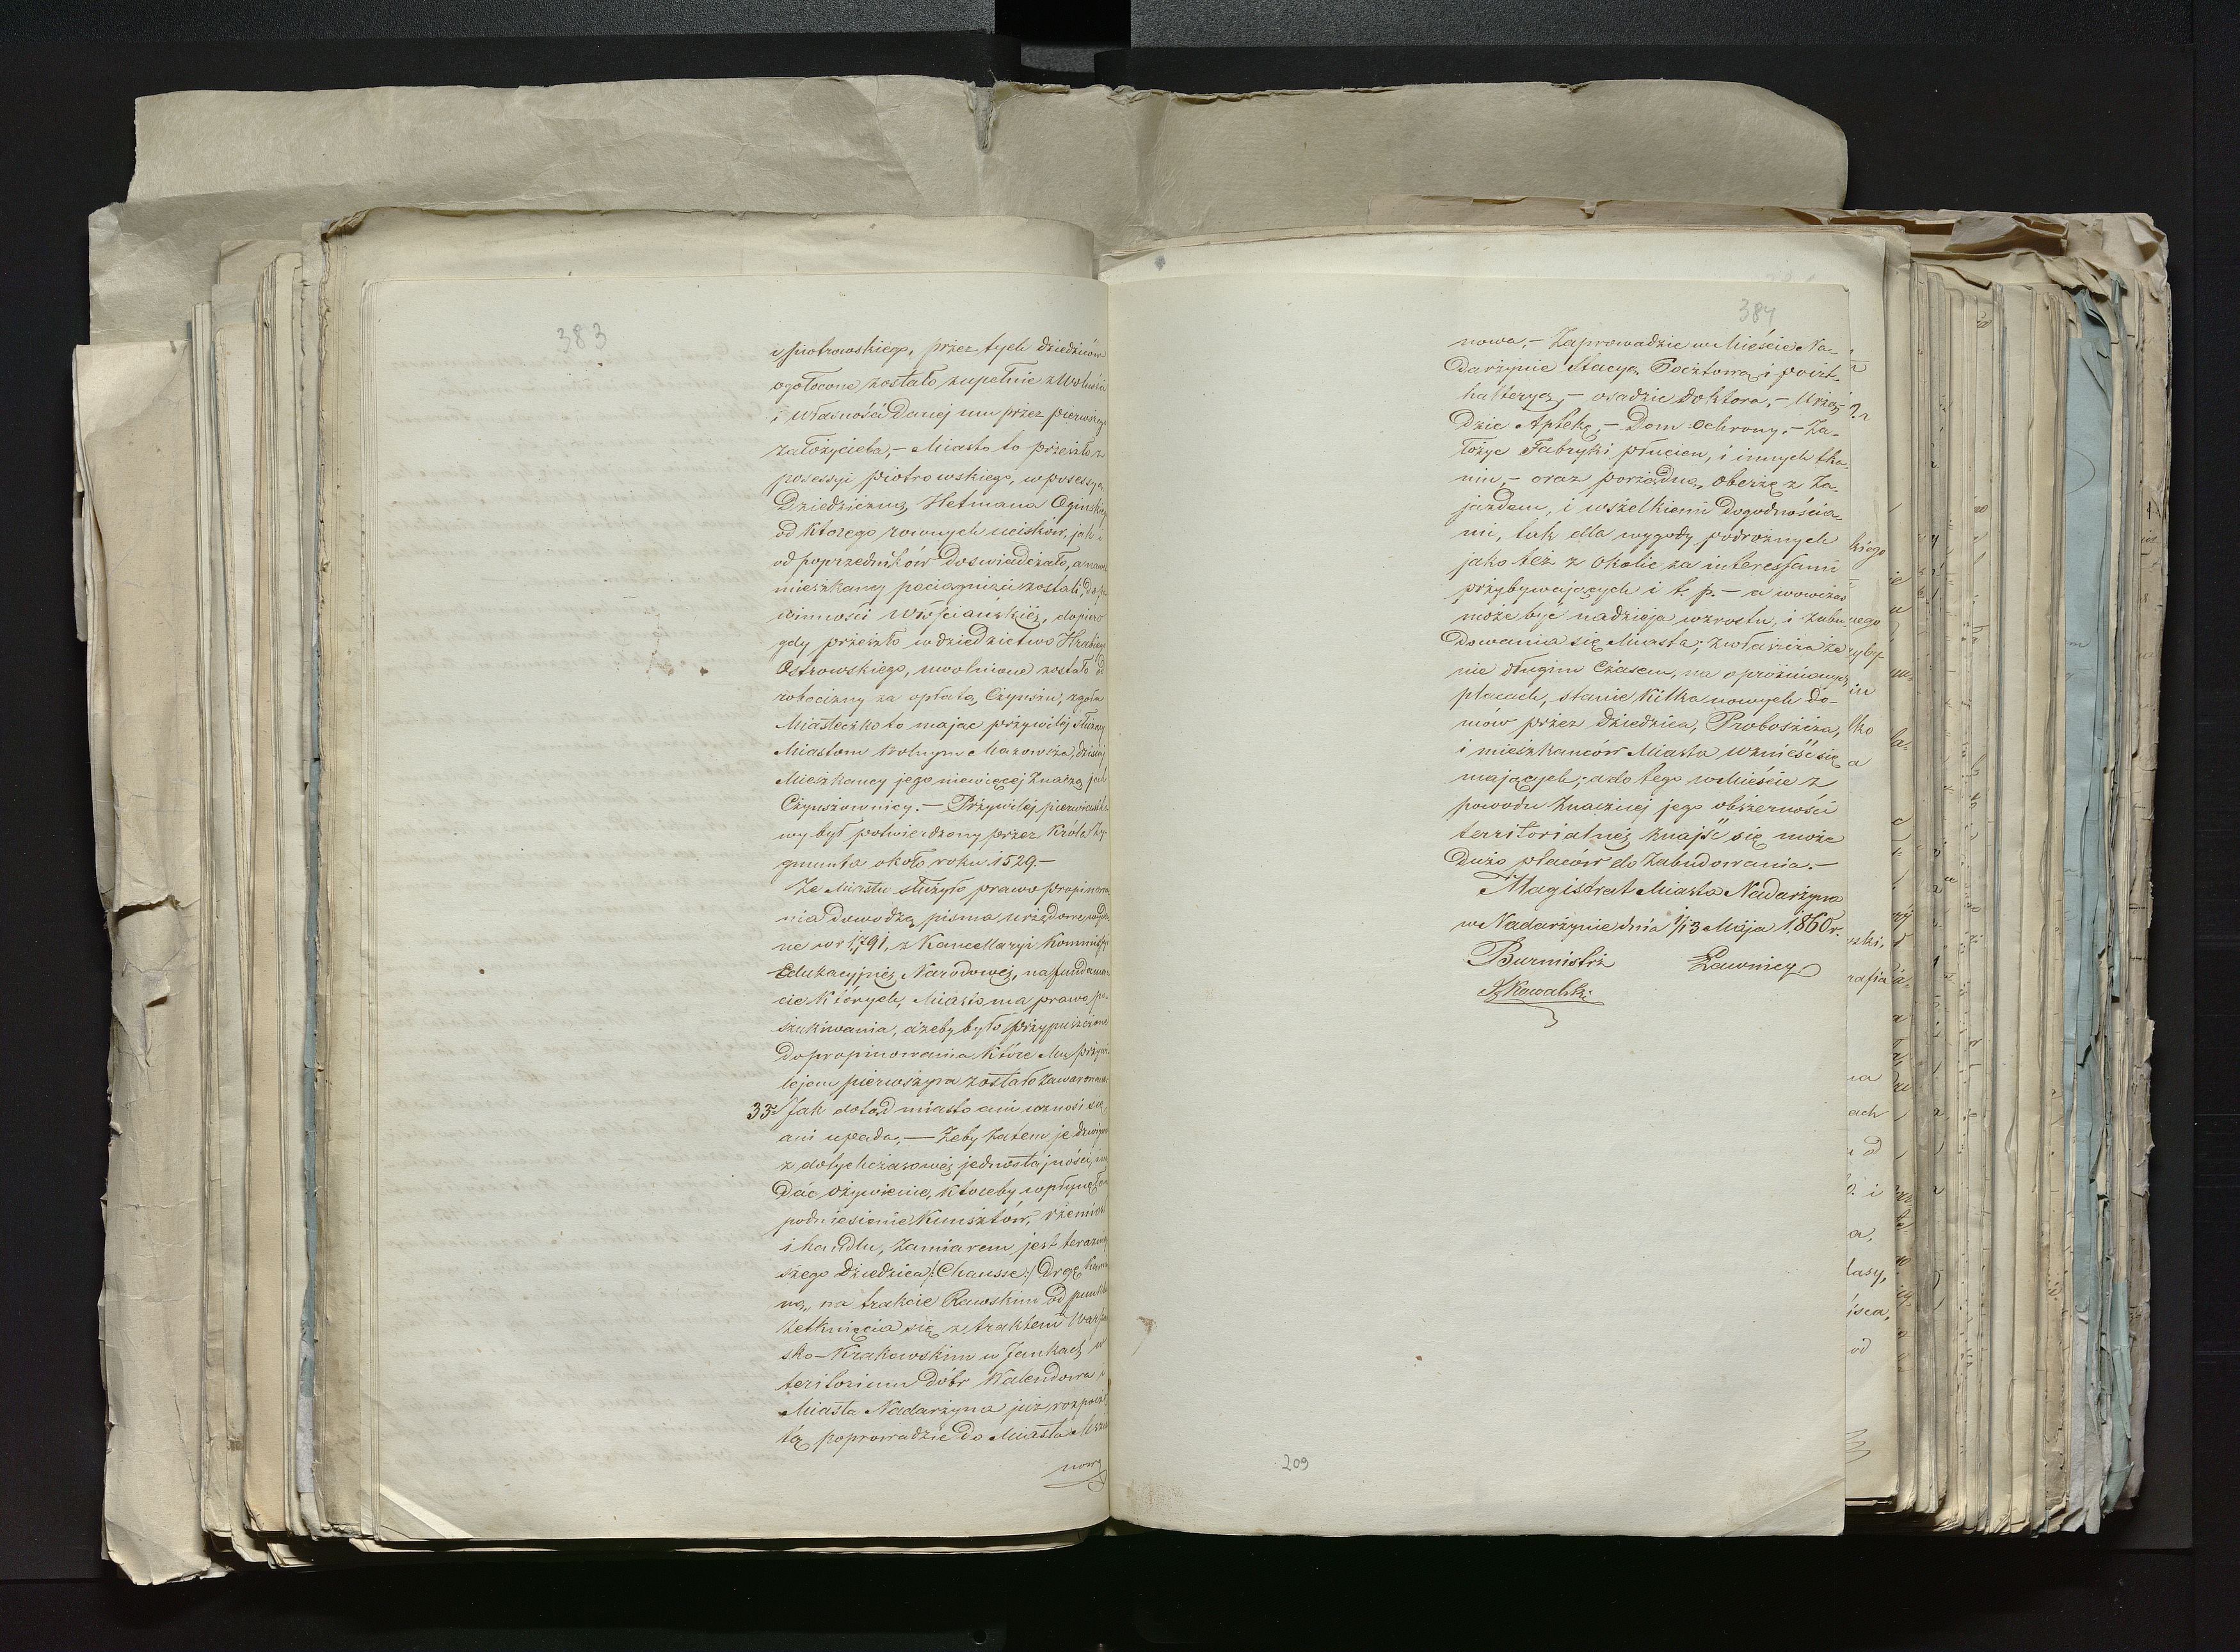 383
i Piotrowskiego, przez tych dziedziców
ogołocone zostało zupełnie z Wolności
i Własności Danej mu przez pierwszego
założyciela, – Miasto to przeszło z
possessyi Piotrowskiego, w posessyą
Dziedziczną Hetmana Ogińskiego
od ktorego rownych ucisków, jak i
od poprzedników Doswiadczało, a nawet
mieszkancy pociągnięci zostali, do po
winności Włościańskiéj, dopiero
gdy przeszło w dziedzictwo Hrabiego
Ostrowskiego, uwolnione zostało od
robocizny za opłatą Czynszu, zgoła
Miasteczko to mając przywiléj służący
Miastom wolnym Mazowsza, dzisiaj
Mieszkancy jego niewięcej Znaczą jak
Czynszownicy. – Przywiléj pierwiastko
wy był potwierdzony przez Króla Zy-
gmunta około roku 1529. –
Że Miastu służyło prawo propinowa
nia Dowodzą pisma urzędowe wyda
ne w r. 1791, z Kancellaryi Kommissyi
Edukacyjnéj Narodowéj, na fundamen
cie których, Miasto ma prawo po-
szukiwania, ażeby było przypuszczone
Do propinowania które Mu przywi
lejem pierwszym zostało Zawarowane
35./ Jak dotąd miasto ani wznosi się,
ani upada, – Żeby Zatem je dzwignąć
z dotychczasowéj jednostajności,
Dać ożywienie, któreby wpłynęło na
podniesienie Kunsztów, rzemiosł
i handlu, Zamiarem jest teraźniej
szego Dziedzica /: Chausse:/ Drogę
ną, na trakcie Rawskim od punktu
Zetknięcia się z traktem Warszaw
sko-Krakowskim w Jankach, w
teritorium Dóbr Walendowa i
Miasta Nadarzyna już rozpoczę
tą poprowadzić Do Miasta Mszczo
nowa
384
nowa, – Zaprowadzić w Mieście Na-
darzynie Stacyą Pocztową i poczt-
halteryą, – osadzić Doktora, – Urzą-
dzić Aptekę, – Dom Ochrony, – Za-
łożyć Fabryki płucien, i innych tka-
nin, – oraz porządną Oberżę z Za-
jazdem, i wszelkiemi Dogodnościa-
mi, tak dla wygody podrożnych
jako też z okolic za interessami
przybywających i t. p. – a wowczas
może być nadzieja wzrostu, i Zabu
dowania się Miasta; zwłaszcza że
nie długim Czasem, na opróżnionych
placach, stanie kilka nowych do-
mów przez Dziedzica, Proboszcza,
i mieszkańców Miasta wznieść się
mających; a do tego w Mieście z
powodu Znacznéj jego obszerności
territorialnéj Znajść się może
Dużo placów do Zabudowania. –
Magistrat Miasta Nadarzyna
w Nadarzynie dnia 1/13 Maja 1860 r.
Burmistrz Ławnicy
Kowalski
209